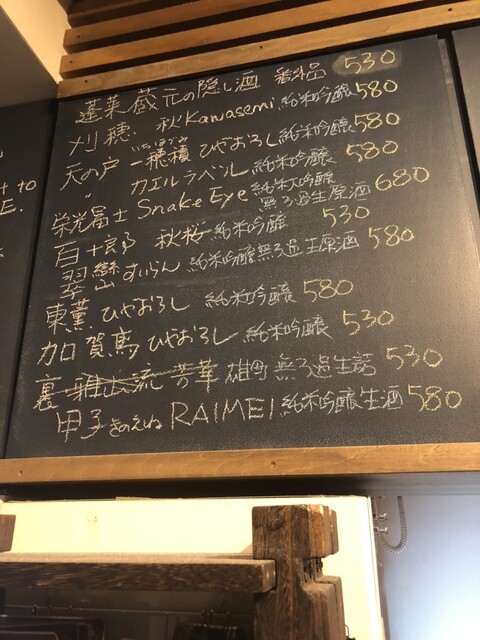 蓬莱 蔵元の隠し酒 番外品 530
刈穂 秋Kawasemi 純米吟醸 580
天の戸 一穂積 ひやおろし 純米吟醸 580
いちほづみ
〃 カエルラベル 純米吟醸 580
栄光冨士 Snake Eye 純米大吟醸 無ろ過生原酒 680
百十郎 秋桜 純米吟醸 530
翠巒 すいらん 純米吟醸無ろ過生原酒 580
東薫 ひやおろし 純米吟醸 580
加賀鳶 ひやおろし 純米吟醸 530
裏 雅山流 芳華 雄町 無ろ過生詰 530
甲子 きのえね RAIMEI 純米吟醸生酒 580
t to
E.